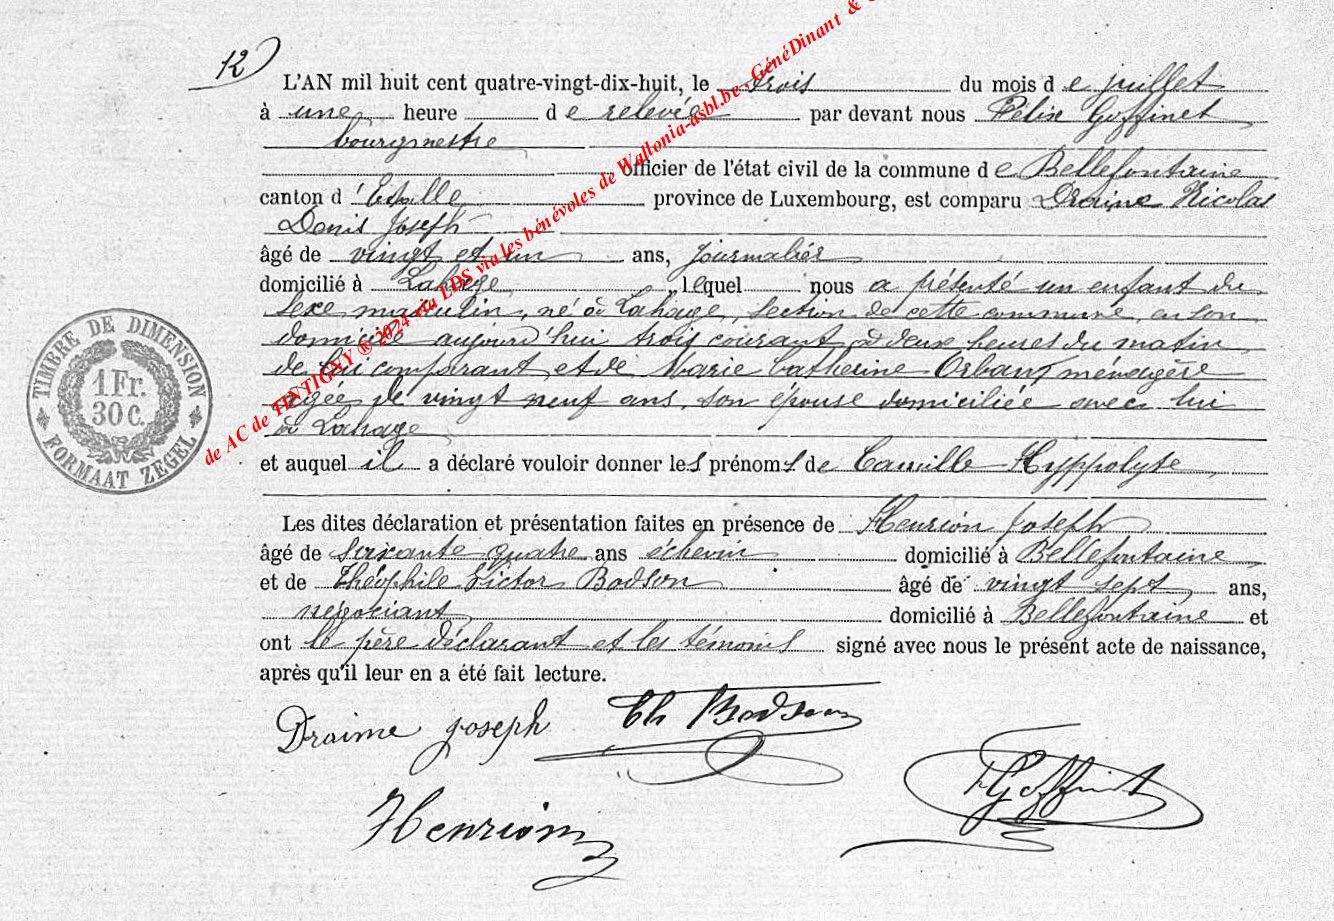 12
L'AN mil huit cent quatre-vingt-dix-huit, le trois du mois de juillet
à une heure de relevée par devant nous Félix Goffinet
bourgmestre
officier de l'état civil de la commune de Bellefontaine
canton d'Etalle province de Luxembourg, est comparu Draime Nicolas
Denis Joseph
âgé de vingt et un ans, journalier
domicilié à Lahage, lequel nous a présenté un enfant du
sexe masculin, né à Lahage, section de cette commune, en son
domicile aujourd'hui trois courant à deux heures du matin
de lui comparant, et de Marie Catherine Orban, ménagère
agée de vingt neuf ans, son épouse domiciliée avec lui
à Lahage
et auquel il a déclaré vouloir donner les prénoms de Camille Hyppolyte,
Les dites déclaration et présentation faites en présence de Henrion Joseph
âgé de soixante quatre ans échevin domicilié à Bellefontaine
et de Théophile Victor Bodson âgé de vingt sept ans,
négociant domicilié à Bellefontaine et
ont le père déclarant et les témoins signé avec nous le présent acte de naissance,
après qu'il leur en a été fait lecture.
Draime Joseph Th Bodson
F Goffinet
Henrion
TIMBRE DE DIMENSION
1 Fr.
30 C.
FORMAAT ZEGEL
de AC de TINTIGNY ® 2024 via LDS via les bénévoles de Wallonia-asbl.be, GénéDinant &